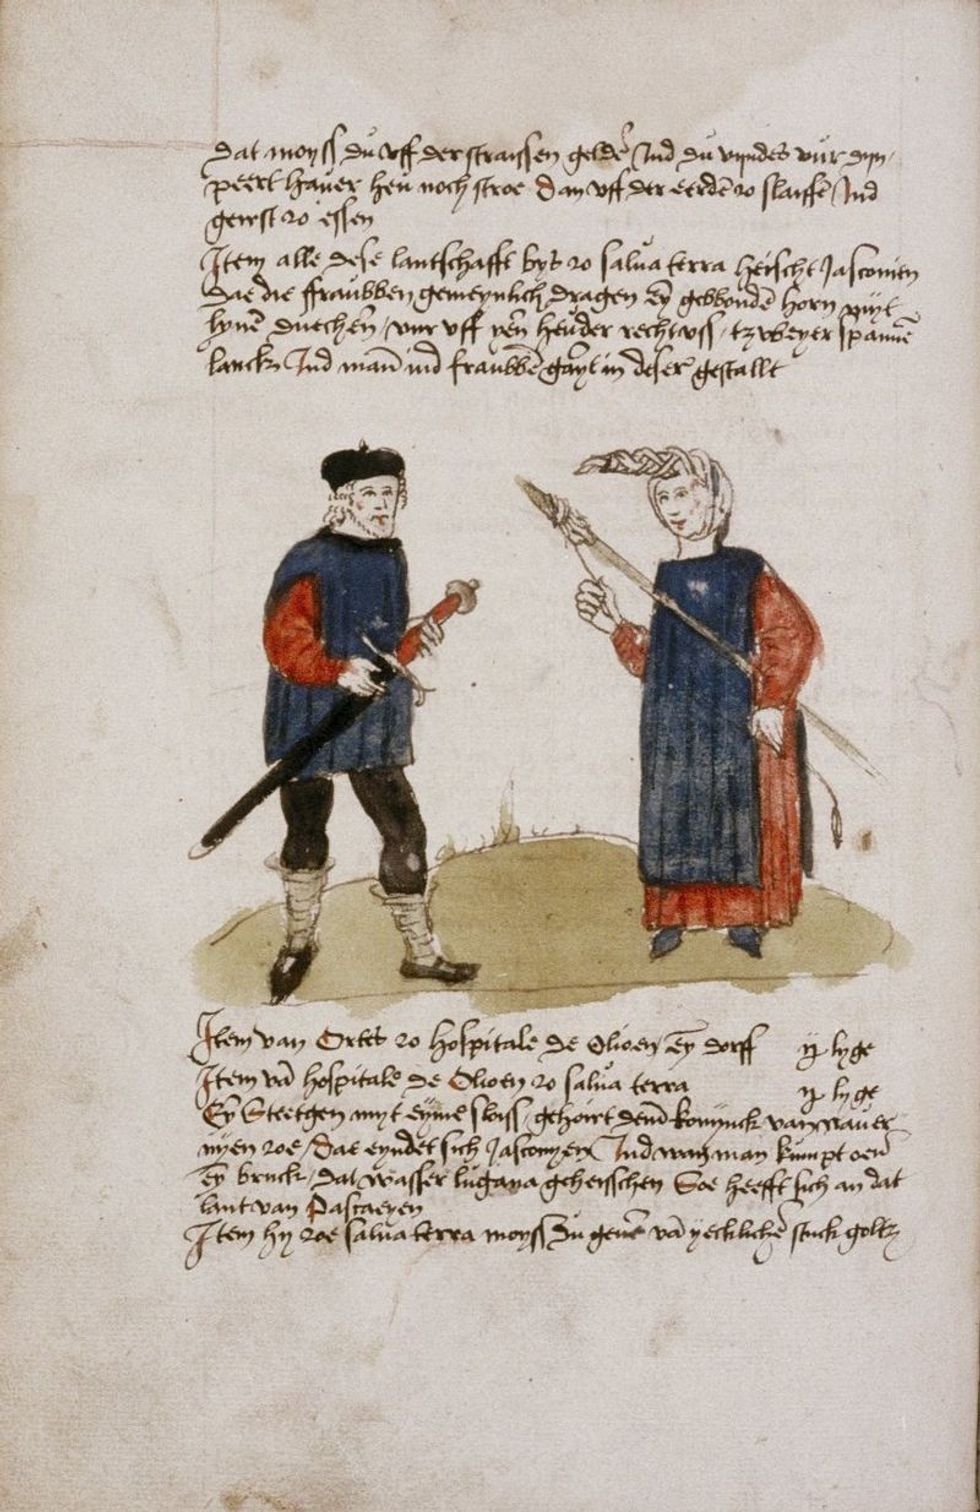 dat moyss du vff der straissen geldē Ind du vyndes vur dyn
peert hauer heu noch stroe dan vff der eerdē zo slaiffē Ind
gerst zo essen
Item alle dese lantschafft bys zo salua terra heischt Jasconien
dae die frauwen gemeynlich dragen eȳ gebbondē horn myt
lynē duechen vur vff yrē heuder recht vss tzweyer spannē
lanck Ind man ind frauwē gayt in deser gestallt
Item van Ortes zo hospitale de Olioen eȳ dorff ij lyge
Item vā hospitale de Olioen zo salua terra ij lyge
Eȳ Steetgen myt eyme sloiss gehoirt dem konynck van nauer
nyen zoe Dae eyndet sich Jasconyen Ind wan man kumpt oeu
eȳ bruck dat wasser lugana geheisschen Soe heefft sich an dat
lant van Pascaeyen
Item hy zoe salua terra moyss du geuē vā yeckliche stuck goltz